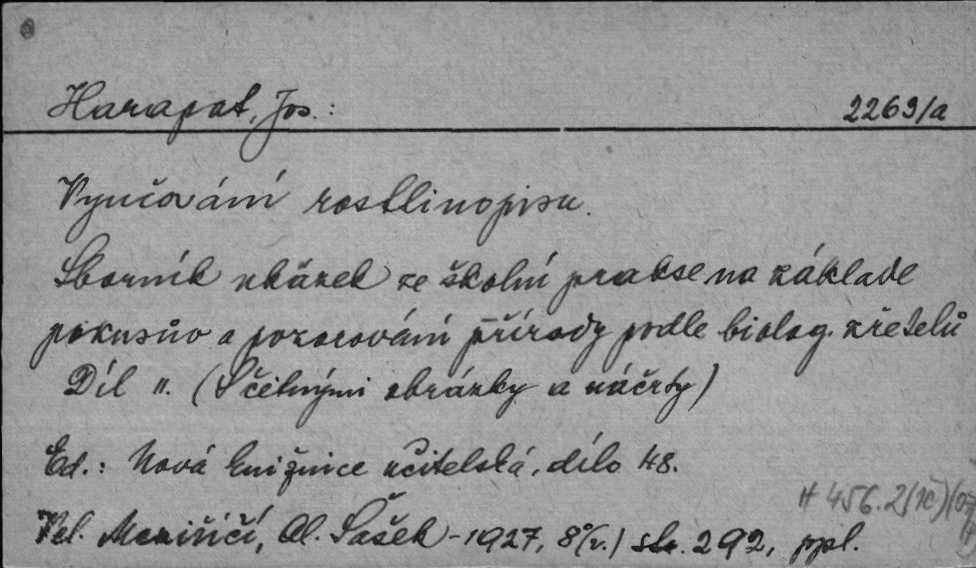 Harapat, Jos.: 2269/a
Vyučování rostlinopisu.
Sborník ukázek ze školní prakse na základe
pokusův a pozorování přírody podle biolog. zřetelů
Díl II. (S četnými obrázky a náčrty)
Ed.: Nová knižnice učitelská, dílo 48.
H 456.2(
Vel. Meziříčí, Al. Šašek - 1927, 8°(v.) str. 292, ppl.